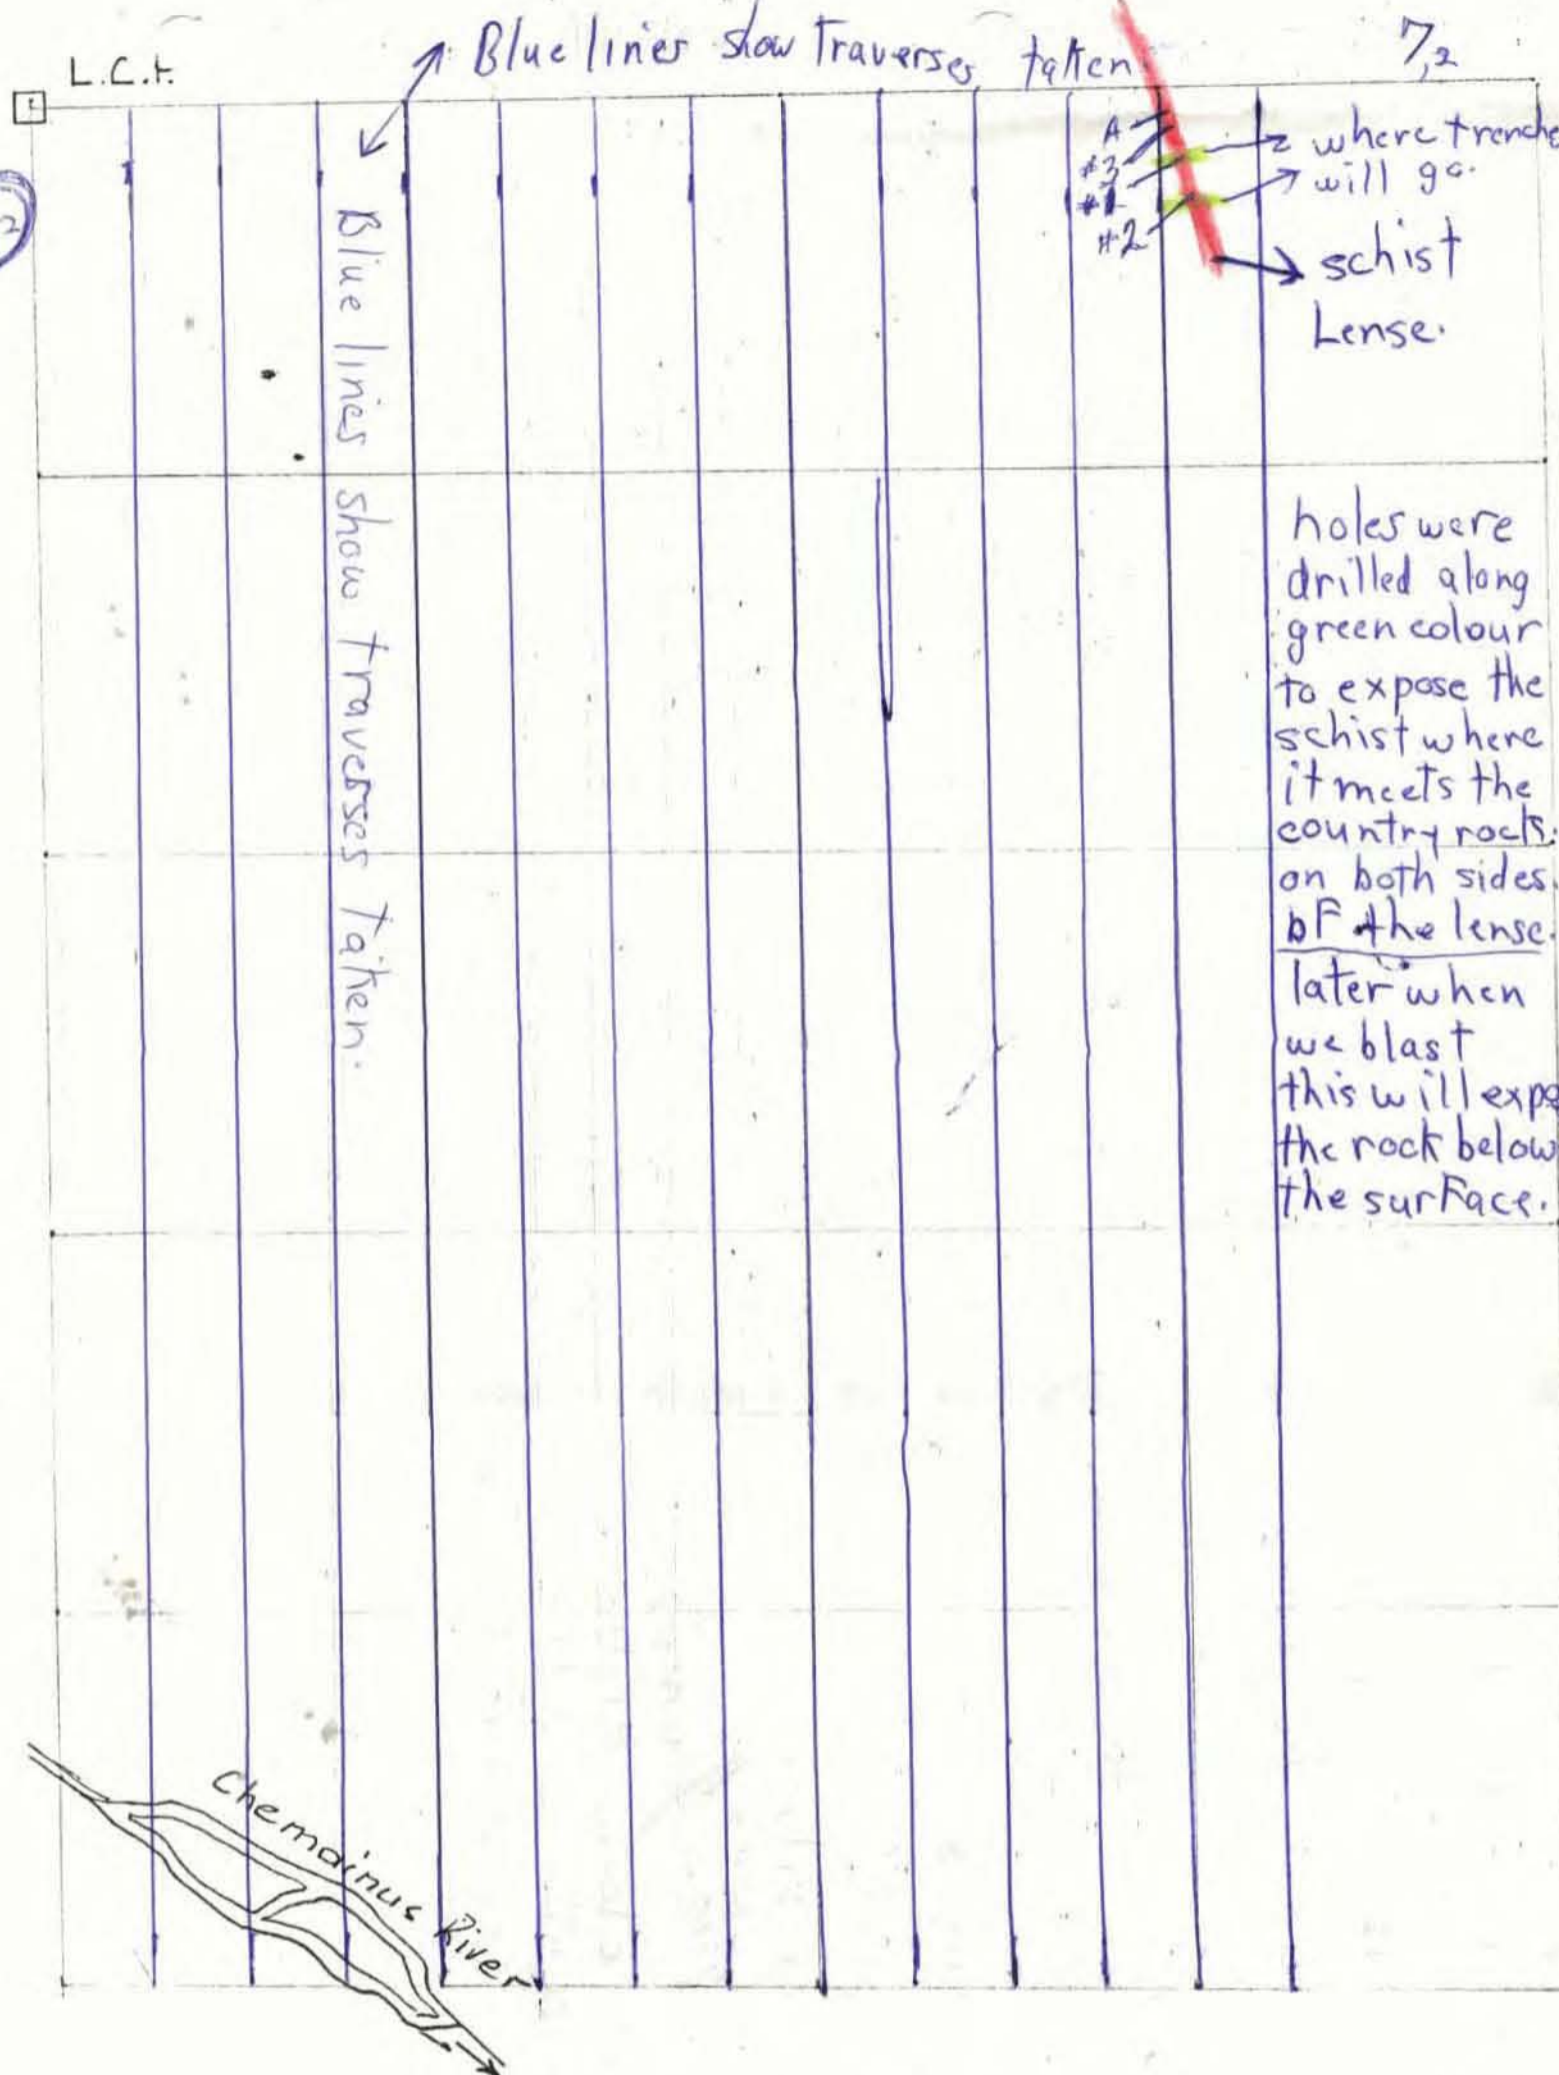 Blue lines show Traverses taken
7,2
L.C.P.
A
#3
#1
#2
where trenche
will go.
schist
Lense.
2
Blue lines show traverses taken.
holes were
drilled along
green colour
to expose the
schist where
it meets the
country rock.
on both sides.
of the lense.
later when
we blast
this will expo
the rock below
the surface.
Chemainus River